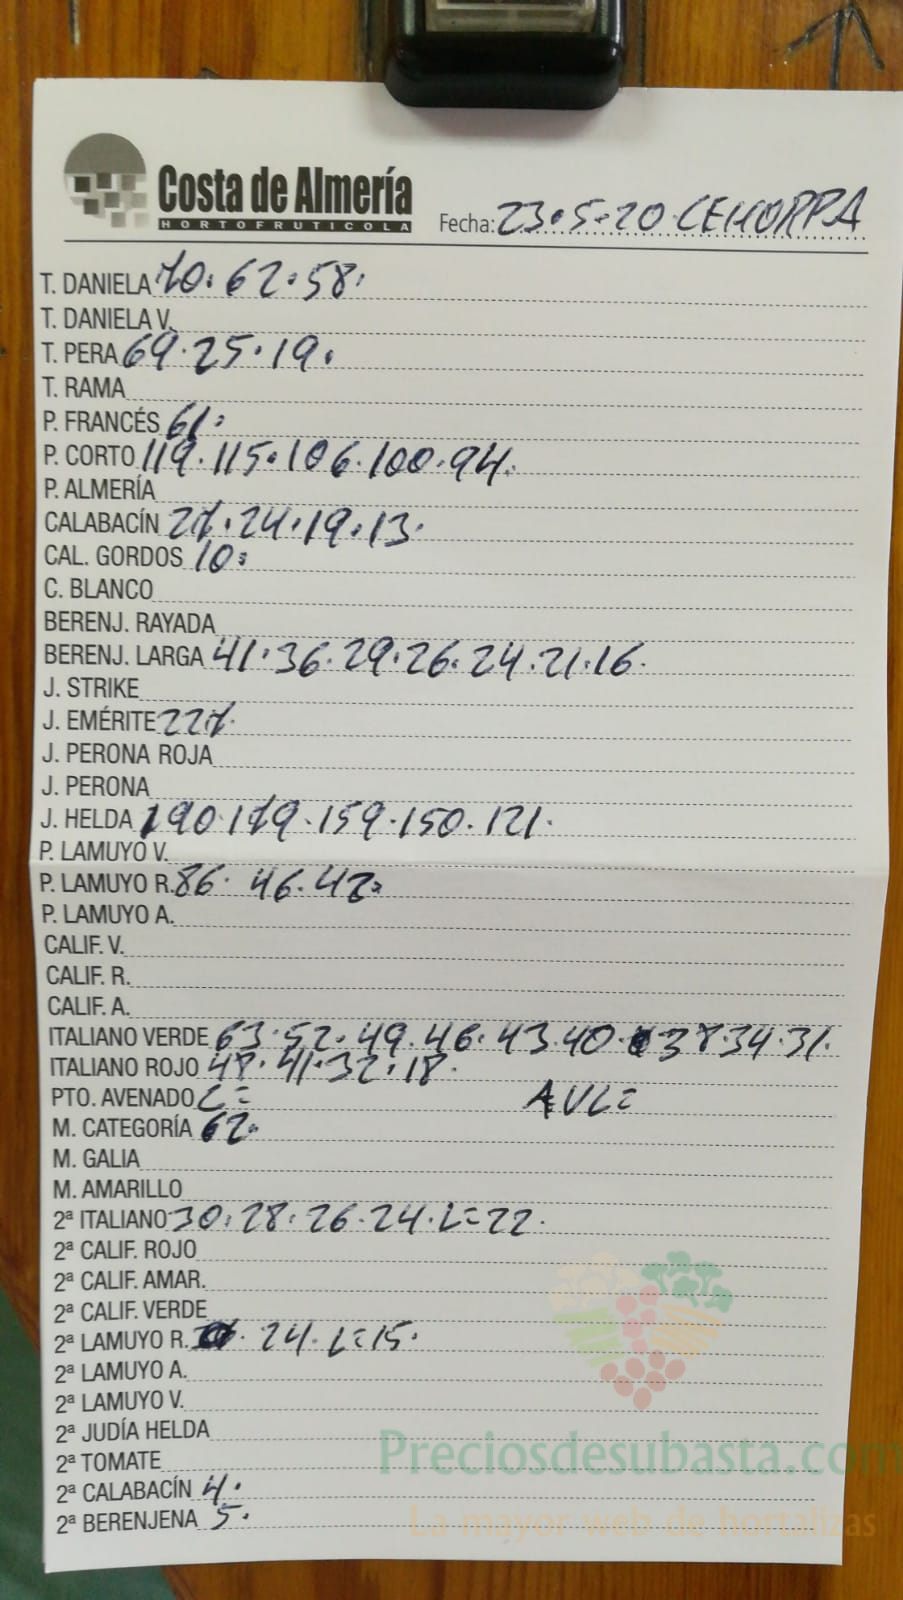 Costa de Almería
HORTOFRUTICOLA
Fecha: 23·5·20 CEHORPA
T. DANIELA 70·62·58·
T. DANIELA V.
T. PERA 69·25·19·
T. RAMA
P. FRANCÉS 61·
P. CORTO 119·115·106·100·94·
P. ALMERÍA
CALABACÍN 27·24·19·13·
CAL. GORDOS 10·
C. BLANCO
BERENJ. RAYADA
BERENJ. LARGA 41·36·29·26·24·21·16·
J. STRIKE
J. EMÉRITE 227·
J. PERONA ROJA
J. PERONA
J. HELDA 190·179·159·150·121·
P. LAMUYO V.
P. LAMUYO R. 86·46·42·
P. LAMUYO A.
CALIF. V.
CALIF. R.
CALIF. A.
ITALIANO VERDE 63·52·49·46·43·40·38·34·31·
ITALIANO ROJO 48·41·32·18·
PTO. AVENADO C= AVL=
M. CATEGORÍA 62·
M. GALIA
M. AMARILLO
2ª ITALIANO 30·28·26·24·L=22·
2ª CALIF. ROJO
2ª CALIF. AMAR.
2ª CALIF. VERDE
2ª LAMUYO R. 24·L=15·
2ª LAMUYO A.
2ª LAMUYO V.
2ª JUDÍA HELDA
2ª TOMATE
2ª CALABACÍN 4·
2ª BERENJENA 5·
Preciosdesubasta.com
La mayor web de hortalizas